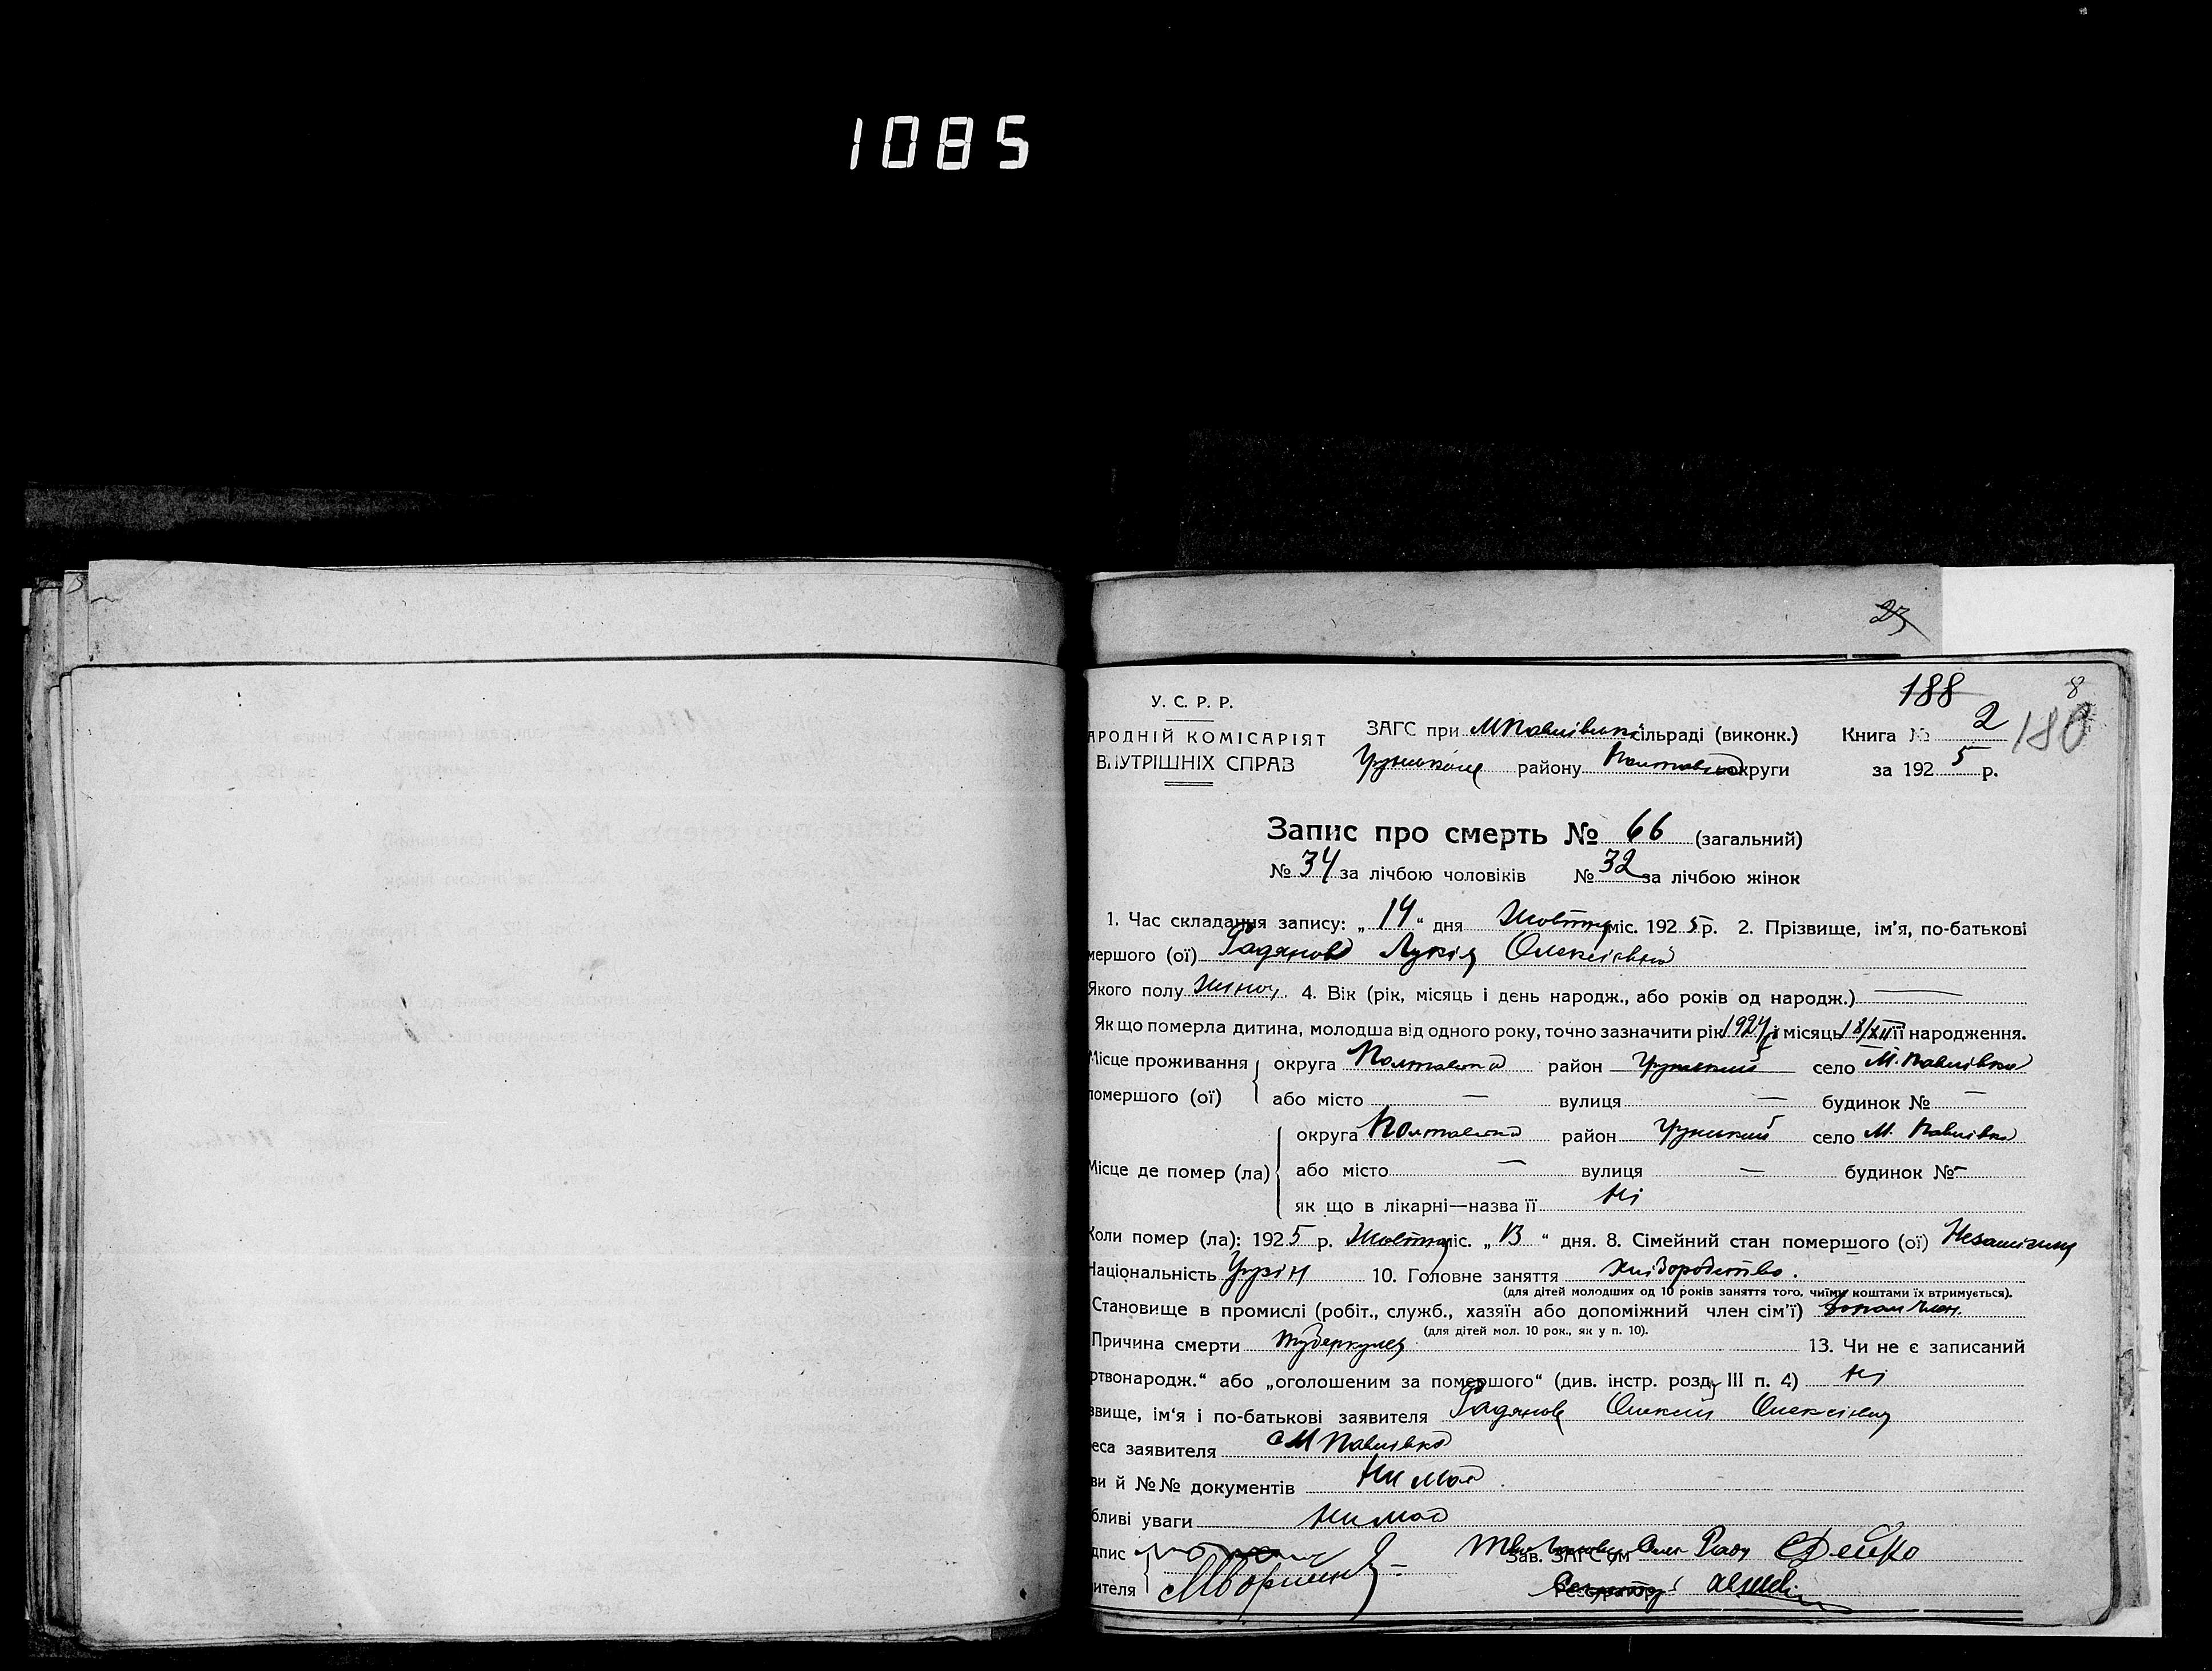 1085
23
188
8
180
У. С. Р. Р.
АРОДНІЙ КОМІСАРІЯТ
ВНУТРІШНІХ СПРАВ
ЗАГС при МПавлівській сільраді (виконк.) Книга № 2
Грунського району Полтавської округи за 1925 р.
Запис про смерть № 66 (загальний)
№ 34 за лічбою чоловіків № 32 за лічбою жінок
1. Час складання запису: „14“ дня Жовтня міс. 1925 р. 2. Прізвище, ім'я, по-батькові
мершого (ої) Лукія Олексіївна
Якого полу жіноч. 4. Вік (рік, місяць і день народж., або років од народж.) —
Як що померла дитина, молодша від одного року, точно зазначити рік 1924 і місяць 18/XII її народження.
Місце проживання округа Полтавська район Грунський село М. Павлівка
помершого (ої) або місто — вулиця — будинок № —
округа Полтавська район Грунський село М. Павлівка
Місце де помер (ла) або місто — вулиця — будинок № —
як що в лікарні—назва її Ні
Коли помер (ла): 1925 р. Жовтня міс. „13“ дня. 8. Сімейний стан помершого (ої)
Національність Українк 10. Головне заняття хліборобство.
(для дітей молодших од 10 років заняття того, чиїми коштами їх втримується).
Становище в промислі (робіт., служб., хазяїн або допоміжний член сім'ї) допом член.
(для дітей мол. 10 рок., як у п. 10).
Причина смерти туберкульоз 13. Чи не є записаний
ртвонародж.“ або „оголошеним за помершого“ (див. інстр. розд. III п. 4) Ні
звище, ім'я і по-батькові заявителя Олексій Олексієвич
еса заявителя с М Павлівка
ви й №№ документів Немає
бливі уваги Немає
дпис
ителя
Зав. ЗАГС'ом
Реєстратор